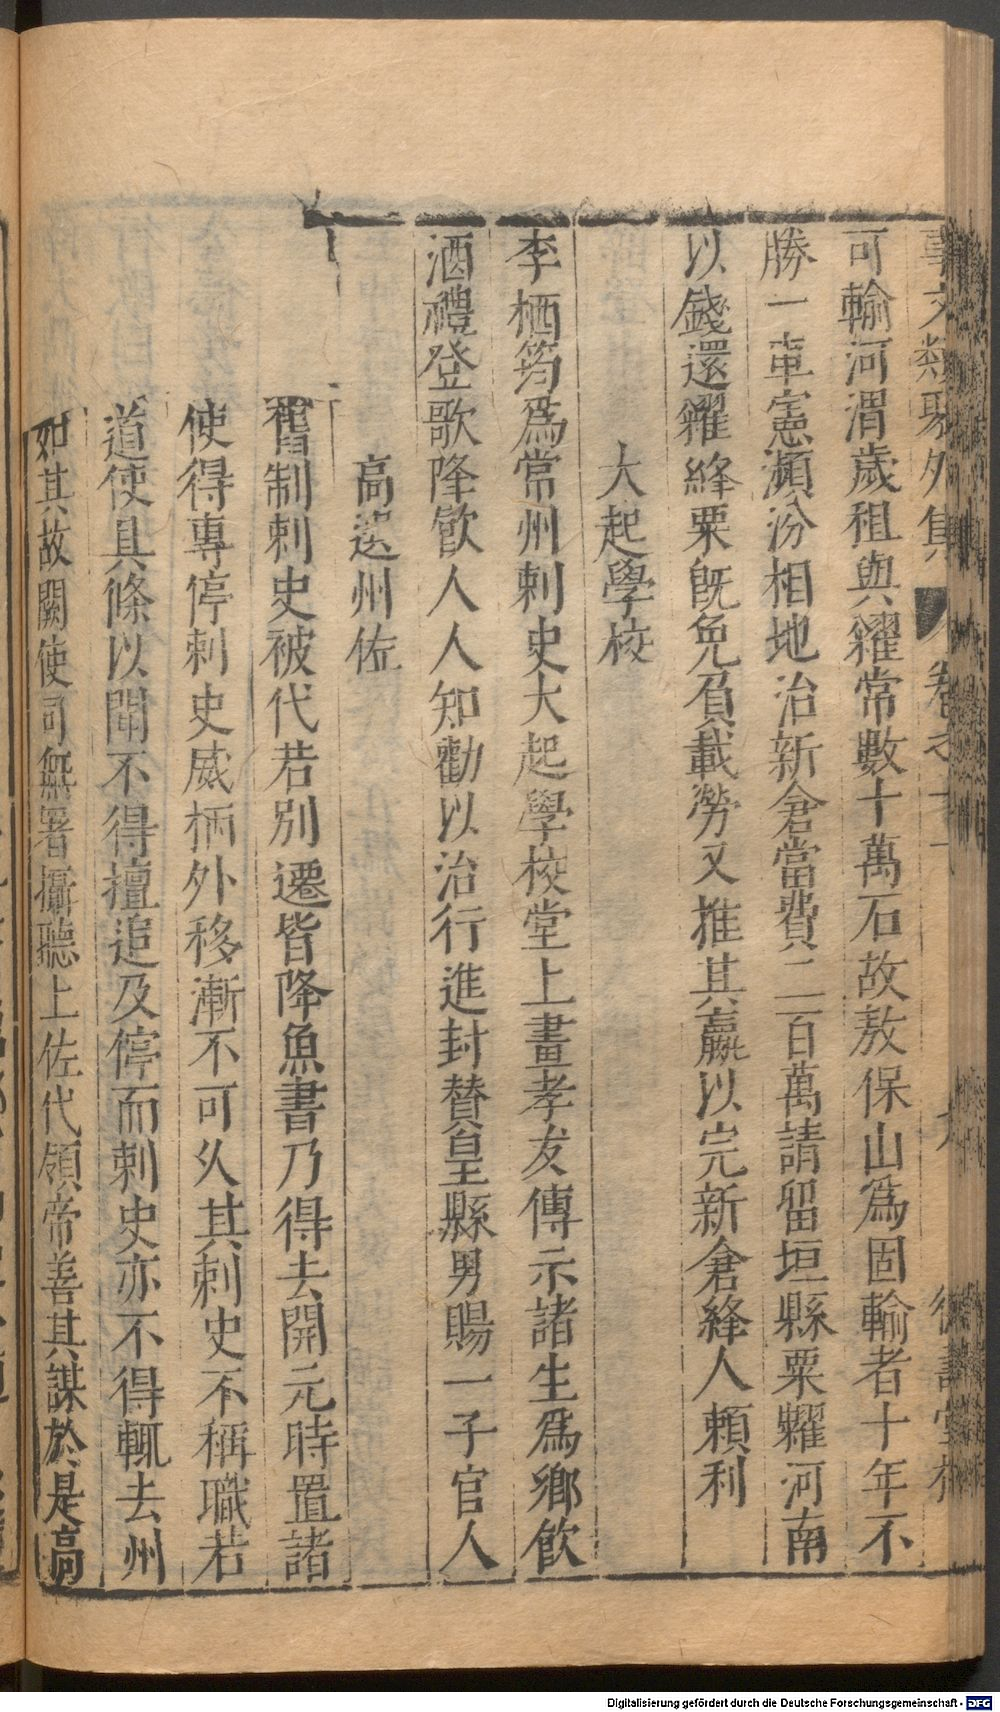 事文類聚外集 卷之十一 德壽堂梓
可輸河渭歲租與糴常數十萬石故敖保山爲固輸者十年不
勝一車憲瀕汾相地治新倉當費二百萬請留垣縣粟糶河南
以錢還糴絳粟旣免負載勞又推其贏以完新倉絳人頼利
大起學校
李栖筠爲常州刺史大起學校堂上畫孝友傳示諸生爲鄉飮
酒禮登歌降飮人人知勸以治行進封贊皇縣男賜一子官人
高選州佐
舊制刺史被代若別遷皆降魚書乃得去開元時置諸
使得專停刺史威柄外移漸不可久其刺史不稱職若
道使具條以聞不得擅追及停而刺史亦不得輒去州
如其故闕使司無署攝聽上佐代領帝善其謀於是高
Digitalisierung gefördert durch die Deutsche Forschungsgemeinschaft - DFG